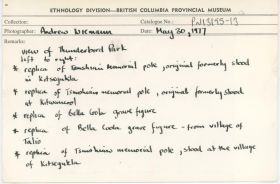 ETHNOLOGY DIVISION—BRITISH COLUMBIA PROVINCIAL MUSEUM
Collection: Catalogue No.: PN13155-13
Photographer: Andrew Niemann Date: May 30, 1977
Remarks:
view of Thunderbird Park
left to right:
* replica of Tsimshian memorial pole, original formerly stood
in Kitsegukla
* replica of Tsimshian memorial pole, original formerly stood at
Kitwancool
* replica of Bella Coola grave figure
* replica of Bella Coola grave figure - from village of
Talio
* replica of Tsimshian memorial pole, stood at the village
of Kitsegukla